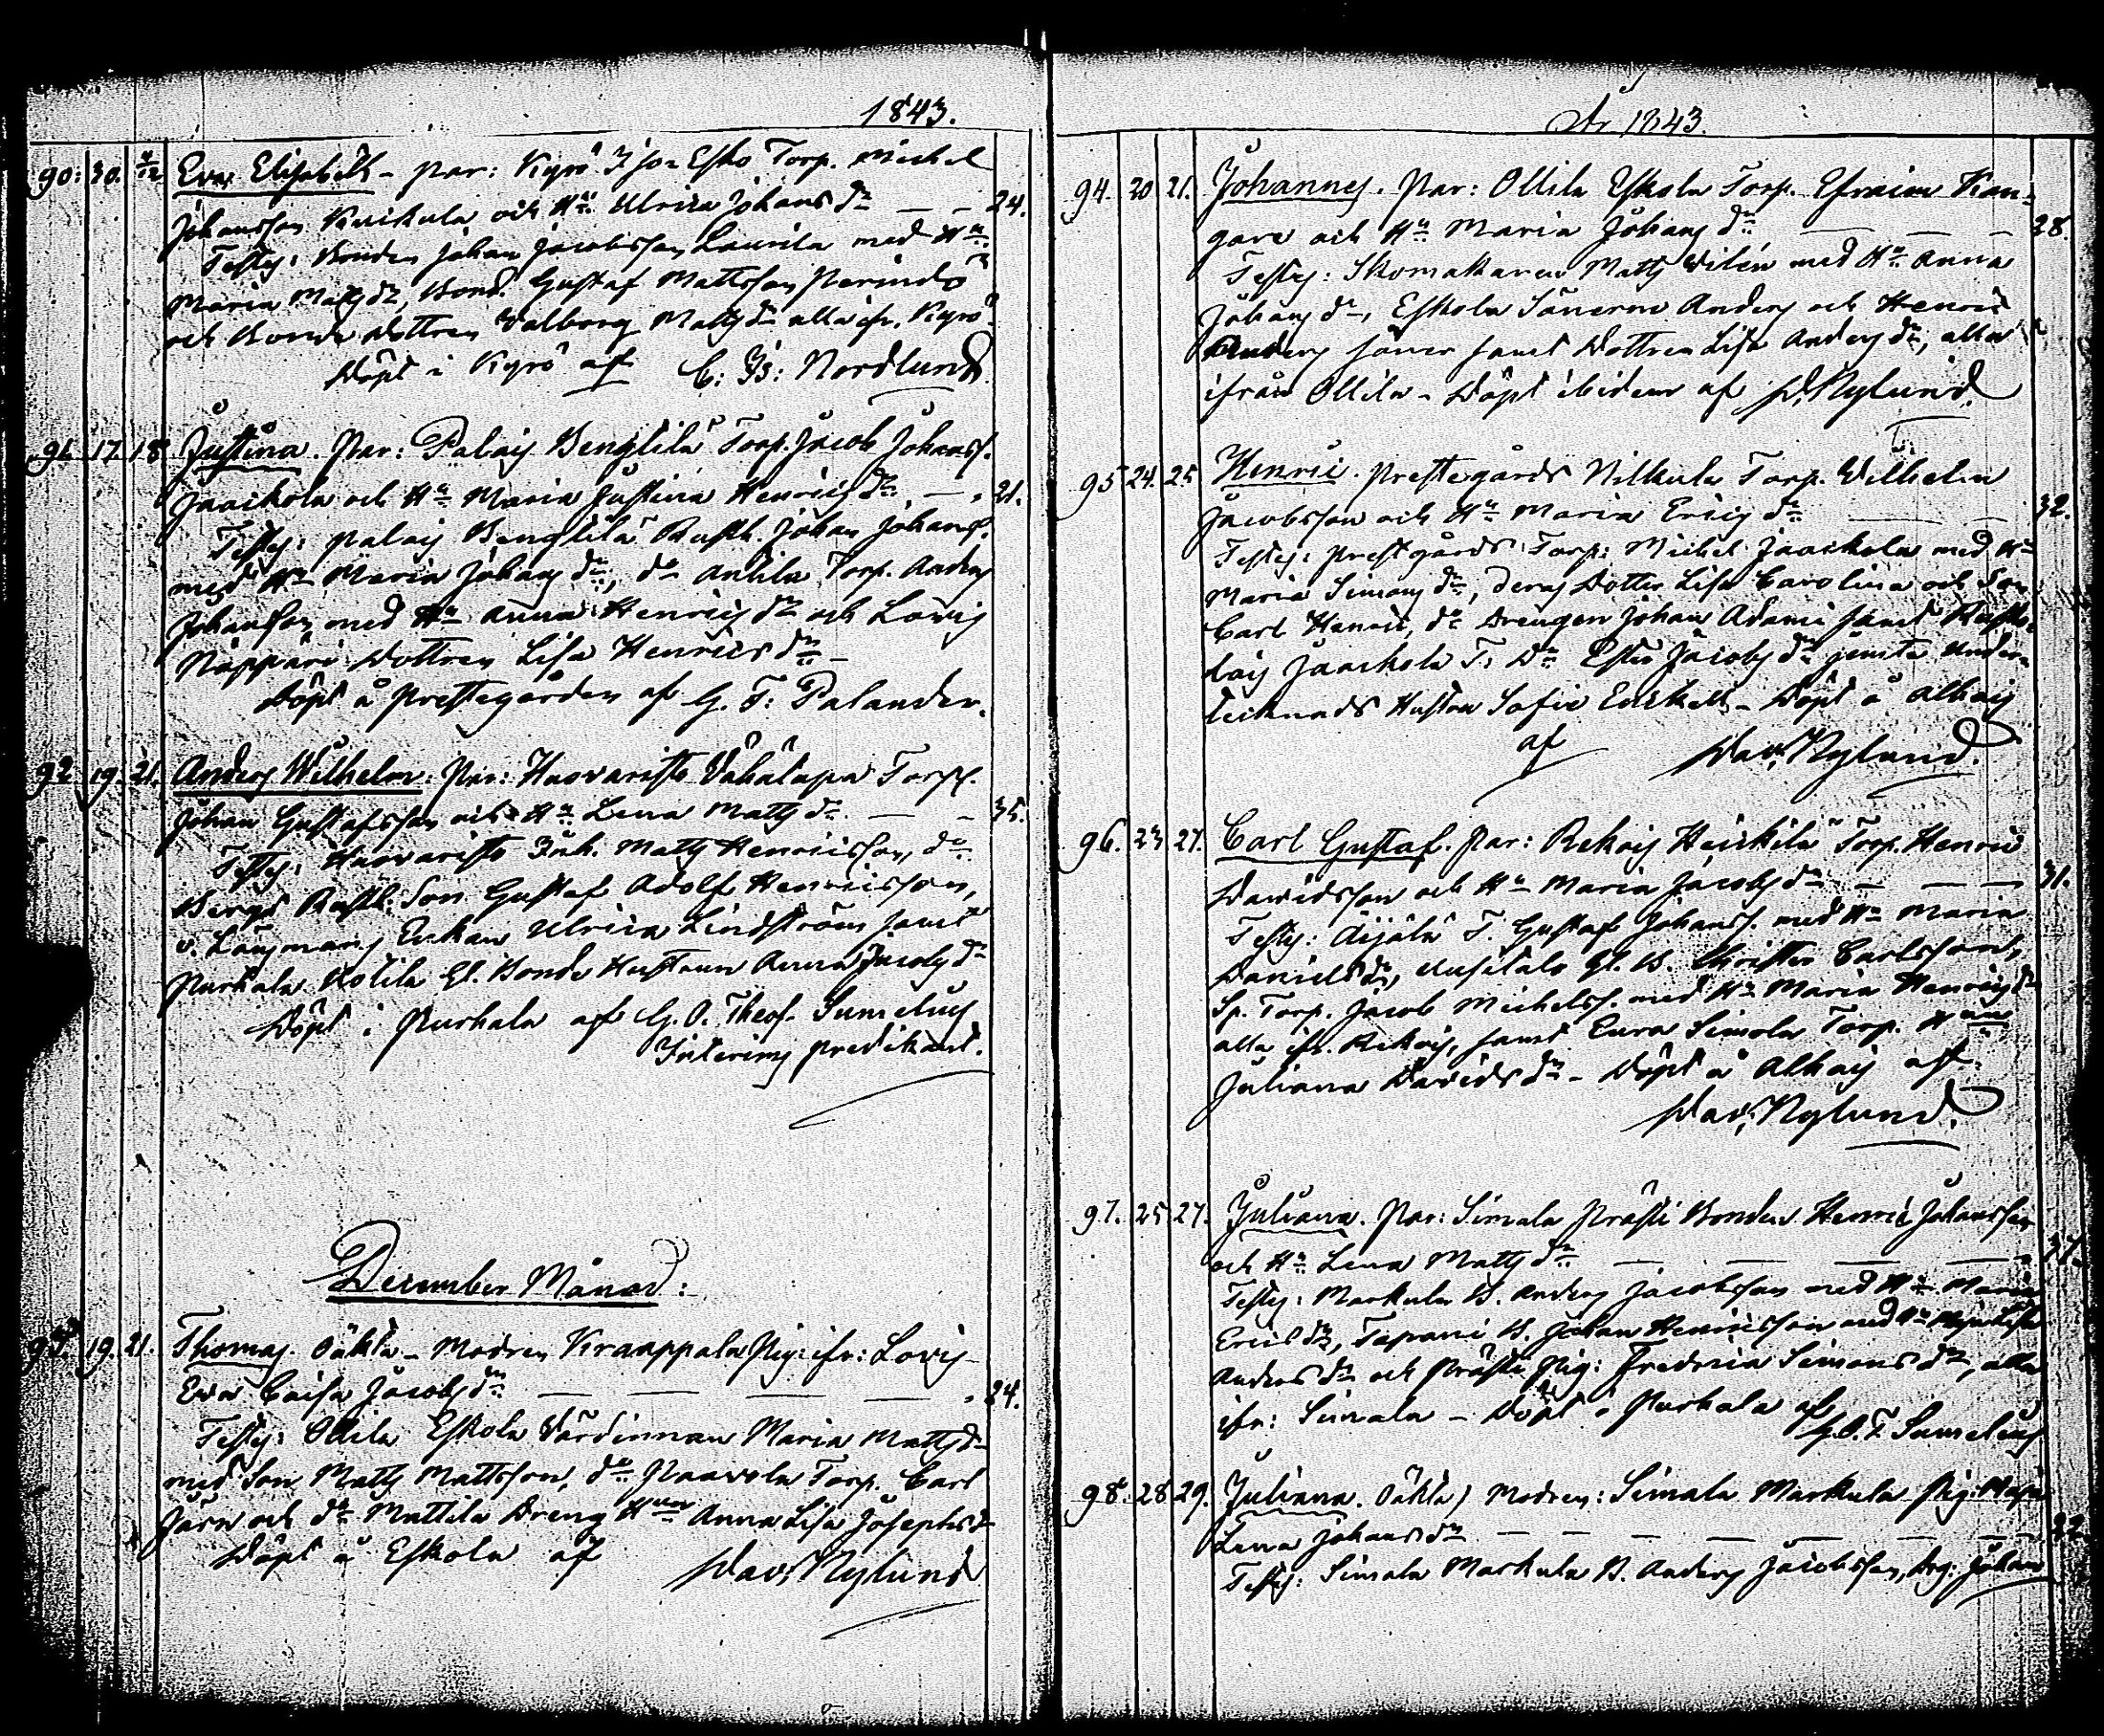 1843.
90. 30. 4/12 Eva Elisabeth - Par: Kyrö Esko Torp. Michel
Johansson Knickula och Hu Ulrica Johans dr — — 24.
Testes: Bonden Johan Jacobsson Laurila med Hu
Maria Matts dr, Bond. Gustaf Mattsson
och Bonde dottren Valborg Matts dr alla ifr. Kyrö
Döpt i Kyrö af C: Nordlund.
91. 17. 18. Justina. Par: Palais Benglilä Torp. Jacob Johanss.
Jaackola och Hu Maria Justina Henrics dr — 21.
Testes: Palais Benglilä Rusth. Johan Johanss.
med Hu Maria Johans dr, do Antila Torp. Anders
Johansson med Hu Anna Henrics dr och Lovis
Näppäri Dottren Lisa Henrics dr
Döpt å Prestegården af G. F: Palander.
92. 19. 21. Anders Wilhelm. Par: Haavaristo Vähätupa Torp.
Johan Gustafsson och Hu Lena Matts dr — — 35.
Testes: Haavaristo Inh. Matts Henricsson, do
Bergs Rusth. Son Gustaf Adolf Henricsson,
v. Långmans Enkan Ulrica Lindström samt
Kotila Gl. Bonde Hustrun Anna Jacobs dr
Döpt i Purkala af G. O. Theof. Sumelius
Interims predikant.
December Månad:
93. 19. 21. Thomas. Oäkta - Modren Kraappala Pig: ifr: Lovis
Eva Caisa Jacobs dr — — — — 24.
Testes: Ollila Eskola Värdinnan Maria Matts dr
med Son Matts Mattsson, do Paavola Torp. Carl
Järn och do Mattila Dreng Hun Anna Lisa Josephs dr
Döpt å Eskola af Dav: Nylund
År 1843.
94. 20 21. Johannes. Par: Ollila Eskola Torp. Efraim Kan-
gare och Hu Maria Johans dr — — — 28.
Testes: Skomakaren Matts Vilén med Hu Anna
Johans dr, Eskola Sönerne Anders och Henric
Anders söner samt Dottren Lisa Anders dr, alla
ifrån Ollila - Döpt ibidem af D. Nylund.
95 24. 25 Henric. Prestegårds Nilkula Torp. Wilhelm
Jacobsson och Hu Maria Erics dr — — 32.
Testes: Prestgårds Torp: Michel Jaackola med Hu
Maria Simons dr, deras Dotter Lisa Carolina och Son
Carl Henric, do Drengen Johan Adami samt
Jaackola T: Dr Ester Jacobs dr jemte under-
tecknads Hustru Sofie - Döpt å Alhais
af Dav: Nylund.
96. 23 27. Carl Gustaf. Par: Rekois Heickilä Torp. Henric
Davidsson och Hu Maria Jacobs dr — — — 31.
Testes: Äijälä T. Gustaf Johanss. med Hu Maria
Daniels dr, Uusitalo Gl. B. Christer Carlsson,
Sp. Torp. Jacob Michelss. med Hu Maria Henrics dr
alla ifr. Rekois, samt Eura Simola Torp. Hun
Juliana Davids dr - Döpt å Alhais af
Dav: Nylund.
97. 25 27. Juliana. Par: Simala Prästi Bonden Henric Johansson
och Hu Lena Matts dr — — — — 37.
Testes: Markula B. Anders Jacobsson med Hu Maria
Erics dr, Tapani B. Johan Henricsson med Hu Maja Lisa
Anders dr och Prästi Pig: Fredrica Simons dr, alla
ifr: Simala - Döpt i Purkala af
G. O. T. Sumelius
98. 28 29. Juliana. Oäkta) Modren: Simala Markula Pig: Maja
Lena Johans dr — — — — — 22
Testes: Simala Markula B. Anders Jacobsson, Drg: Johan